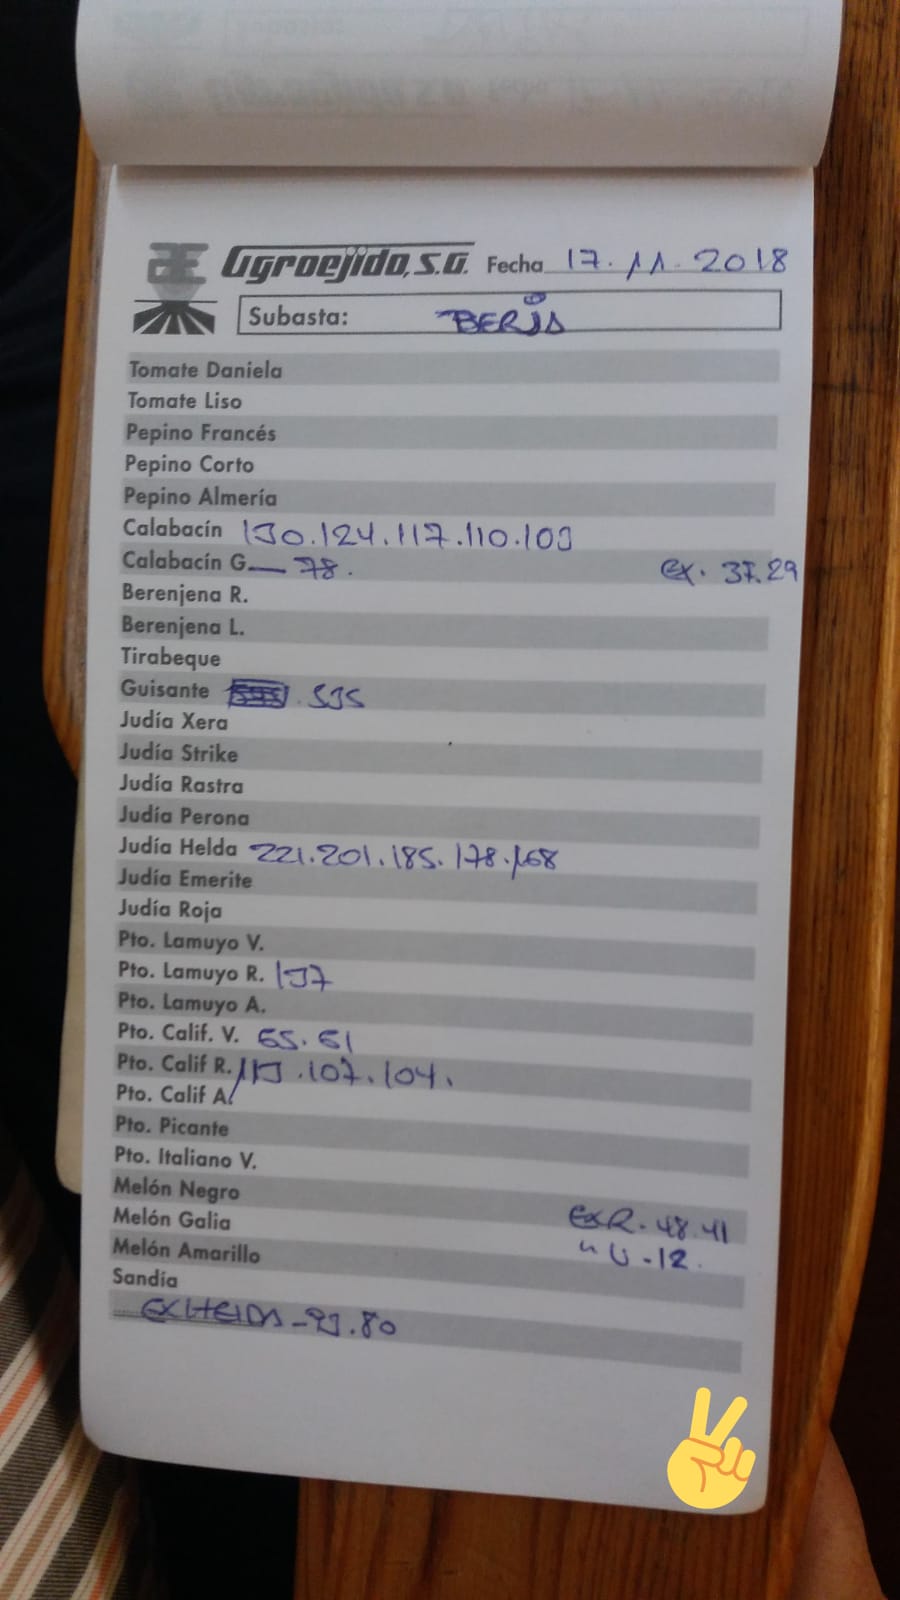 Agroejido, S.A. Fecha 17.11.2018
Subasta: BERJA
Tomate Daniela
Tomate Liso
Pepino Francés
Pepino Corto
Pepino Almería
Calabacín 130.124.117.110.103
Calabacín G. — 78. ex. 37.29
Berenjena R.
Berenjena L.
Tirabeque
Guisante .535
Judía Xera
Judía Strike
Judía Rastra
Judía Perona
Judía Helda 221.201.185.178.168
Judía Emerite
Judía Roja
Pto. Lamuyo V.
Pto. Lamuyo R. 137
Pto. Lamuyo A.
Pto. Calif. V. 65.61
Pto. Calif R. 113.107.104.
Pto. Calif A.
Pto. Picante
Pto. Italiano V.
Melón Negro
Melón Galia EXR.48.41
Melón Amarillo " V-12.
Sandía
EXHELDA-93.80